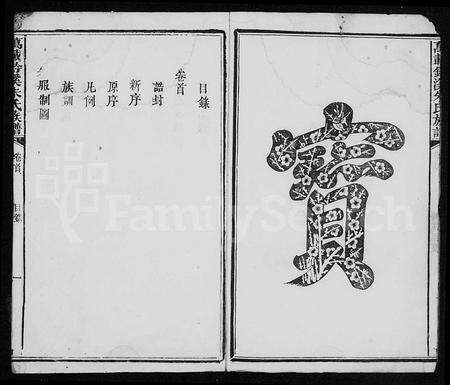 寶
目錄
卷首
誥封
新序
原序
凡例
族訓
服制圖
氏族譜
卷首
目錄
一
FamilySearch